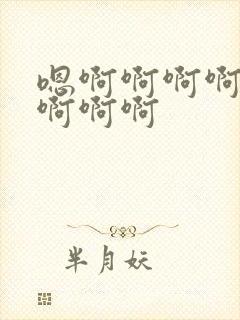 嗯啊啊啊啊
啊啊啊
半月妖